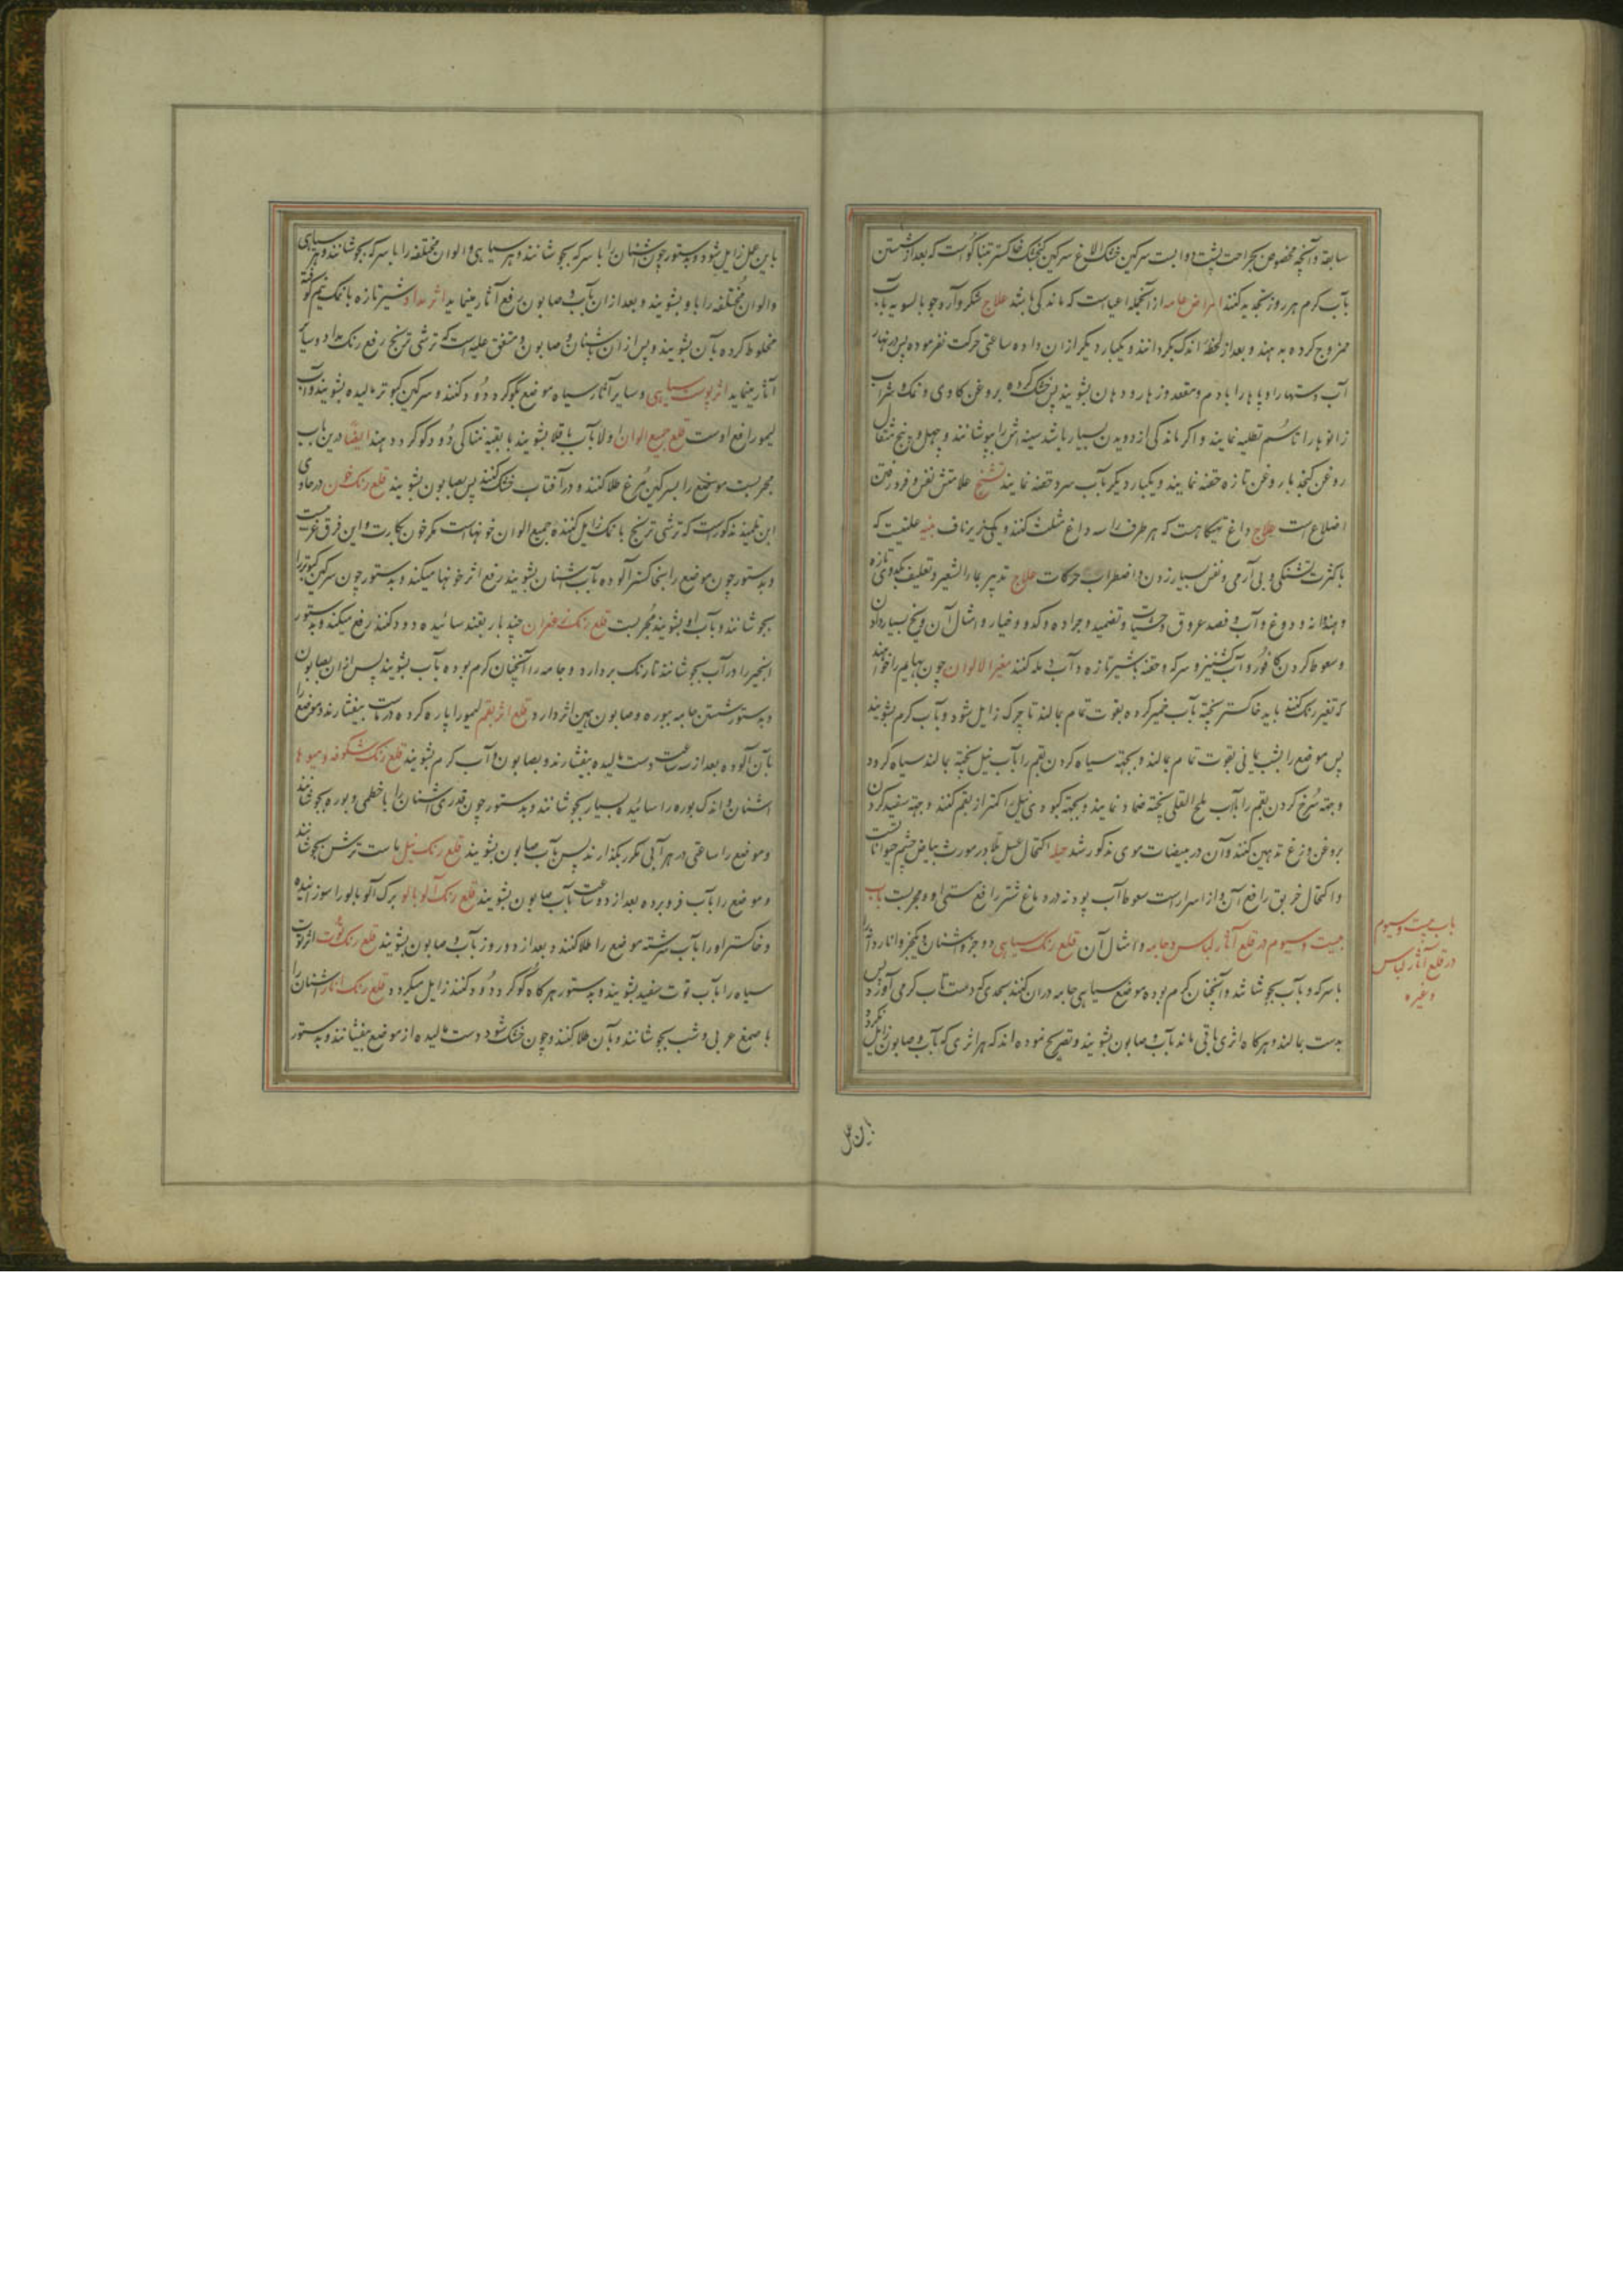 سابقه و آنچه مخصوص بجراحت پشت دوابست سرکین خشک الاغ سرکین کنجشک خاکستر تنباکو است که بعد از شستن
بآب کرم هر روز سنجیده کنند امراض عامه از آنجمله اعیاست که ماندکی باشد علاج شکر و آرد جو بالسویه بآب
ممزوج کرده بدهند و بعد از لحظه اندک بکردانند و یکبار دیکر از ان داده ساعتی حرکت نفرموده پس در نهار
آب دستها و پاها را با دم و مقعد و زهار و دهان بشویند پس خشک کرده بروغن کاوی و نمک و شراب
زانوها را تا سم تطلیه نمایند و اکر ماندکی از دویدن بسیار باشد سینه اش را بپوشانند و چهل و پنج مثقال
روغن کنجد با روغن تازه حقنه نمایند و یکبار دیکر بآب سرد حقنه نمایند تشنج علامتش نفس و فرو رفتن
اضلاع است علاج داغ تهیکاهست که هر طرف را سه داغ مثلث کنند و یکی زیر ناف علتیست که
با کثرت تشنکی و بی آرامی و نفس بسیار زدن و اضطراب حرکات علاج تدبیر بماء الشعیر و تعلیف بکدوی تازه
و هندوانه و دوغ و آب و فصد عروق و تضمید و جراده کدو و خیار و امثال آن و یخ بسیار دادن
و سعوط کردن کافور و آب کشنیز و سرکه و حقنه بشیر تازه و آب کنند مغیر الالوان چون بهایم را خواهند
که تغیر رنک کنند باید خاکستر پخته بآب خمیر کرده بقوت تمام بمالند تا چرک زایل شود و بآب کرم بشویند
پس موضع را بشب یمانی بقوت تمام بمالند و بجهته سیاه کردن بقم را بآب نیل پخته بمالند سیاه کردد
و جهته سرخ کردن بقم را بآب ملح القلی پخته ضماد نمایند و بجهته کبودی نیل اکثر از بقم کنند و جهته سفید کردن
بروغن وزغ تدهین کنند و آن در مبیضات موی مذکور شد حیله اکتحال عسل بلادر مورث بیاض چشم حیواناتست
و اکتحال خربق رافع آن و از اسرار است سعوط آب پودنه در دماغ شتر رافع مستی او و مجربست باب
بیست و سیوم در قلع آثار لباس و جامه و امثال آن قلع رنک سیاهی دو جزو اشنان و یکجزو انار دانه را
با سرکه و بآب بجوشاند و آنچنان کرم بوده موضع سیاهی جامه در ان کنند بحدی که دست تاب کرمی آورد پس
بدست بمالند و هرکاه اثری باقی ماند بآب و صابون بشویند و تصریح نموده اند که هر اثری که بآب و صابون زایل نکردد
باب بیست و سیوم
در قلع آثار لباس
و غیره
باین عمل
باین عمل زایل شود و بدستور چون اشنان را با سرکه بجوشانند و هر سیاهی و الوان مختلفه را با سرکه بجوشانند و هر سیاهی
و الوان مختلفه را باو بشویند و بعد از ان بآب و صابون رفع آثار مینماید اثر مداد شیر تازه با نمک نیم کوفته
مخلوط کرده بآن بشویند و پس از ان باشنان و صابون و متفق علیه است که ترشی ترنج رفع رنک مداد و سایر
آثار مینماید اثر پوست سیاهی و سایر آثار سیاه موضع بکوکرد دود کنند و سرکین کبوتر مالیده بشویند و آب
لیمو رافع اوست قلع جمیع الوان اولا بآب باقلا بشویند با بقیه نمناکی دود کوکرد دهند ایضا درین باب
مجربست موضع را بسرکین مرغ طلا کنند و در آفتاب خشک کنند پس بصابون بشویند قلع رنک خون در حاوی
ابن تلمیذ مذکور است که ترشی ترنج با نمک زایل کننده جمیع الوان خونهاست مکر خون بکارت و این فرق غریبست
و بدستور چون موضع را بخاکستر آلوده بآب اشنان بشویند رفع اثر خونها میکند و بدستور چون سرکین کبوتر را
بجوشانند و بآب او بشویند مجربست قلع رنک زعفران چند بار بقند سائیده دود کنند رفع میکند و بدستور
انجیر را در آب بجوشانند تا رنک بردارد و جامه را آنچنان کرم بوده بآب بشویند پس از ان بصابون
و بدستور شستن جامه ببوره و صابون همین اثر دارد قلع اثر بقم لیمو را پاره کرده در ماست بیفشارند و موضع را
بآن آلوده بعد از سه ساعت دست مالیده بیفشارند و بصابون با آب کرم بشویند قلع رنک شکوفه و میوها
اشنان و اندک بوره را سائیده بسیار بجوشانند و بدستور چون قدری اشنان را با خطمی و بوره بجوشانند
و موضع را ساعتی در هر آبی مکرر بکذارند پس بآب صابون بشویند قلع رنک نیل با ماست ترش بجوشانند
و موضع را بآب فرو برده بعد از دو ساعت بآب صابون بشویند قلع رنک آلوبالو برک آلوبالو را سوزانیده
و خاکستر او را بآب سرشته موضع را طلا کنند و بعد از دو روز بآب و صابون بشویند قلع رنک توت اثر توت
سیاه را بآب توت سفید بشویند و بدستور هرکاه کوکرد دود کنند زایل میکردد قلع رنک انار اشنان را
با صمغ عربی و شب بجوشانند و بآن طلا کنند و چون خشک شود دست مالیده از موضع بیفشانند و بدستور